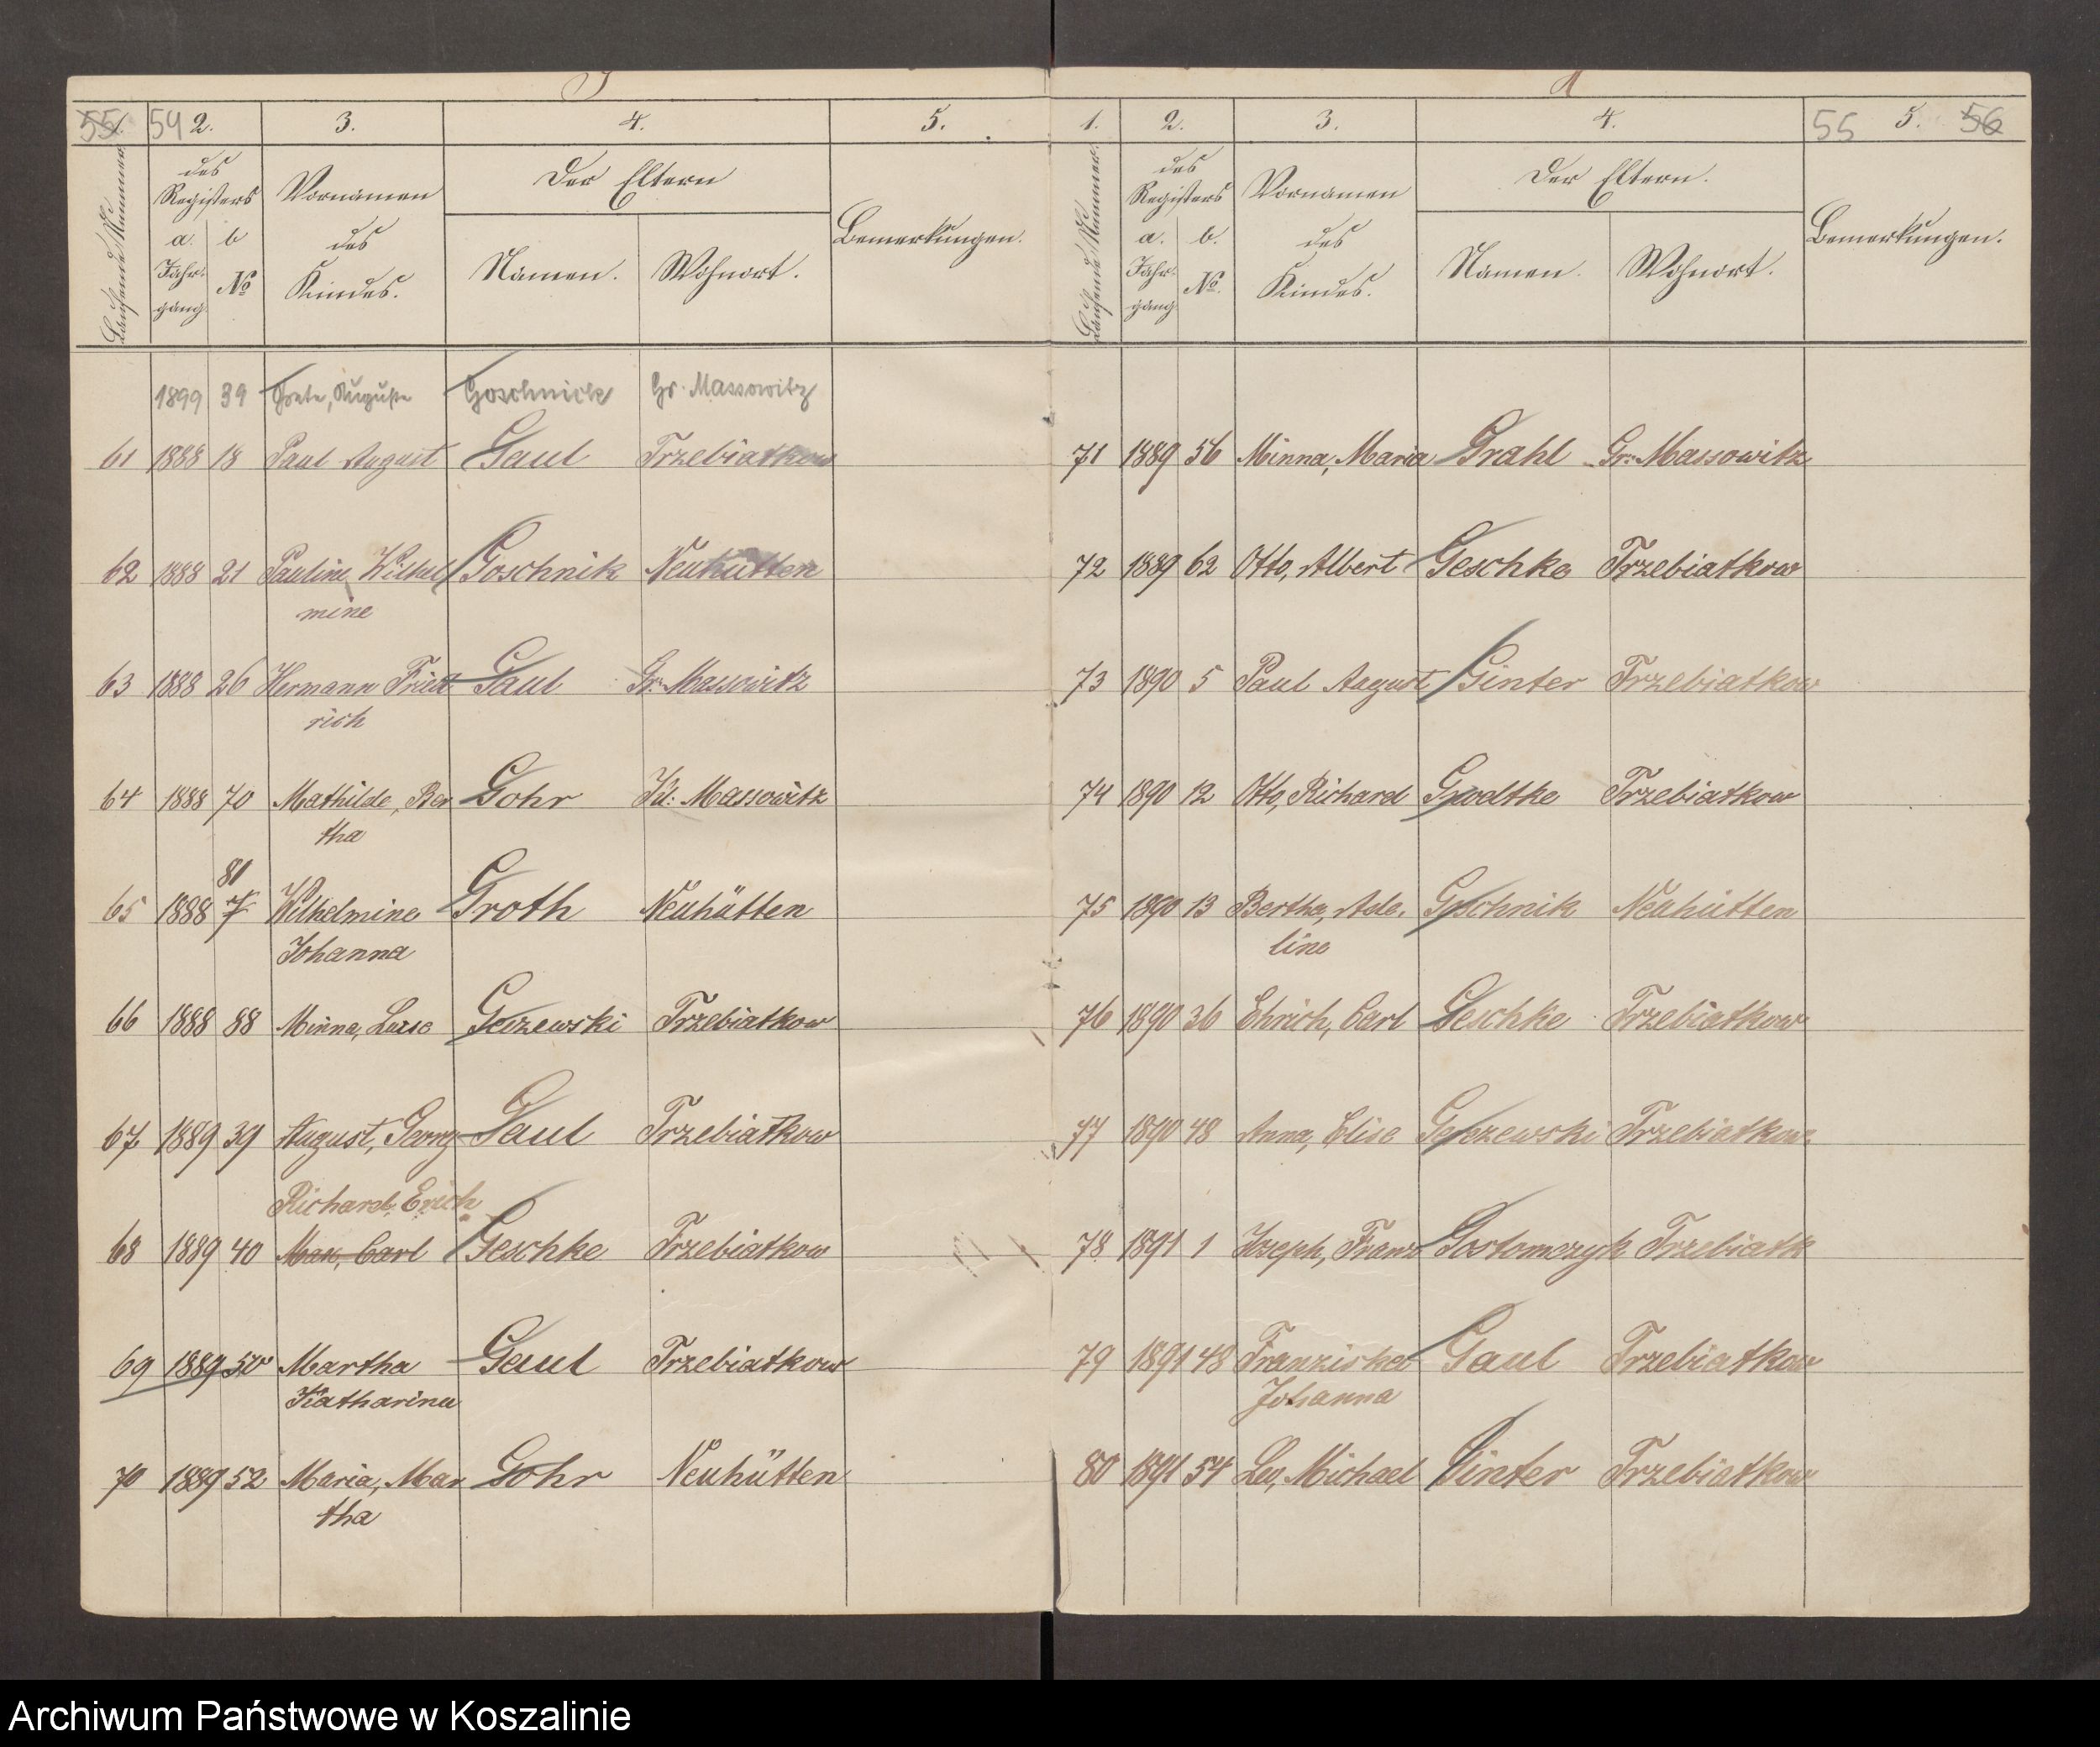 55 54
1. 2. 3. 4. 5.
Laufende Nummer.
des Registers
a. Jahrgang. b №
Vornamen des Kindes.
Der Eltern
Namen. Wohnort.
Bemerkungen.
1899 39 Grete, Auguste Goschnick Gr. Massowitz
61 1888 18 Paul August Gaul Trzebiatkow
62 1888 21 Pauline Wilhel Goschnik Neuhütten
mine
63 1888 26 Hermann Fried Gaul Gr. Massowitz
rich
64 1888 70 Mathilde, Ber Gohr Kl: Massowitz
tha
81
65 1888 7 Wilhelmine Groth Neuhütten
Johanna
66 1888 88 Minna, Luise Gerzewski Trzebiatkow
67 1889 39 August, Georg Gaul Trzebiatkow
Richard, Erich
68 1889 40 Max, Carl Geschke Trzebiatkow
69 1889 50 Martha Gaul Trzebiatkow
Katharina
70 1889 52 Maria, Mar Gohr Neuhütten
tha
1. 2. 3. 4. 55 5. 56
Laufende Nummer.
des Registers
a. Jahrgang b. №.
Vornamen des Kindes.
Der Eltern.
Namen. Wohnort.
Bemerkungen.
71 1889 56 Minna, Maria Grahl Gr: Massowitz
72 1889 62 Otto, Albert Geschke Trzebiatkow
73 1890 5 Paul August Ginter Trzebiatkow
74 1890 12 Otto, Richard Grodtke Trzebiatkow
75 1890 13 Bertha, Ade. Goschnik Neuhütten
line
76 1890 36 Ehrich, Carl Geschke Trzebiatkow
77 1890 48 Anna, Elise Trzebiatkow
78 1891 1 Joseph, Franz Gostomczyk Trzebiatk
79 1891 48 Franziska Gaul Trzebiatkow
Johanna
80 1891 54 Leo, Michael Ginter Trzebiatkow
Archiwum Państwowe w Koszalinie